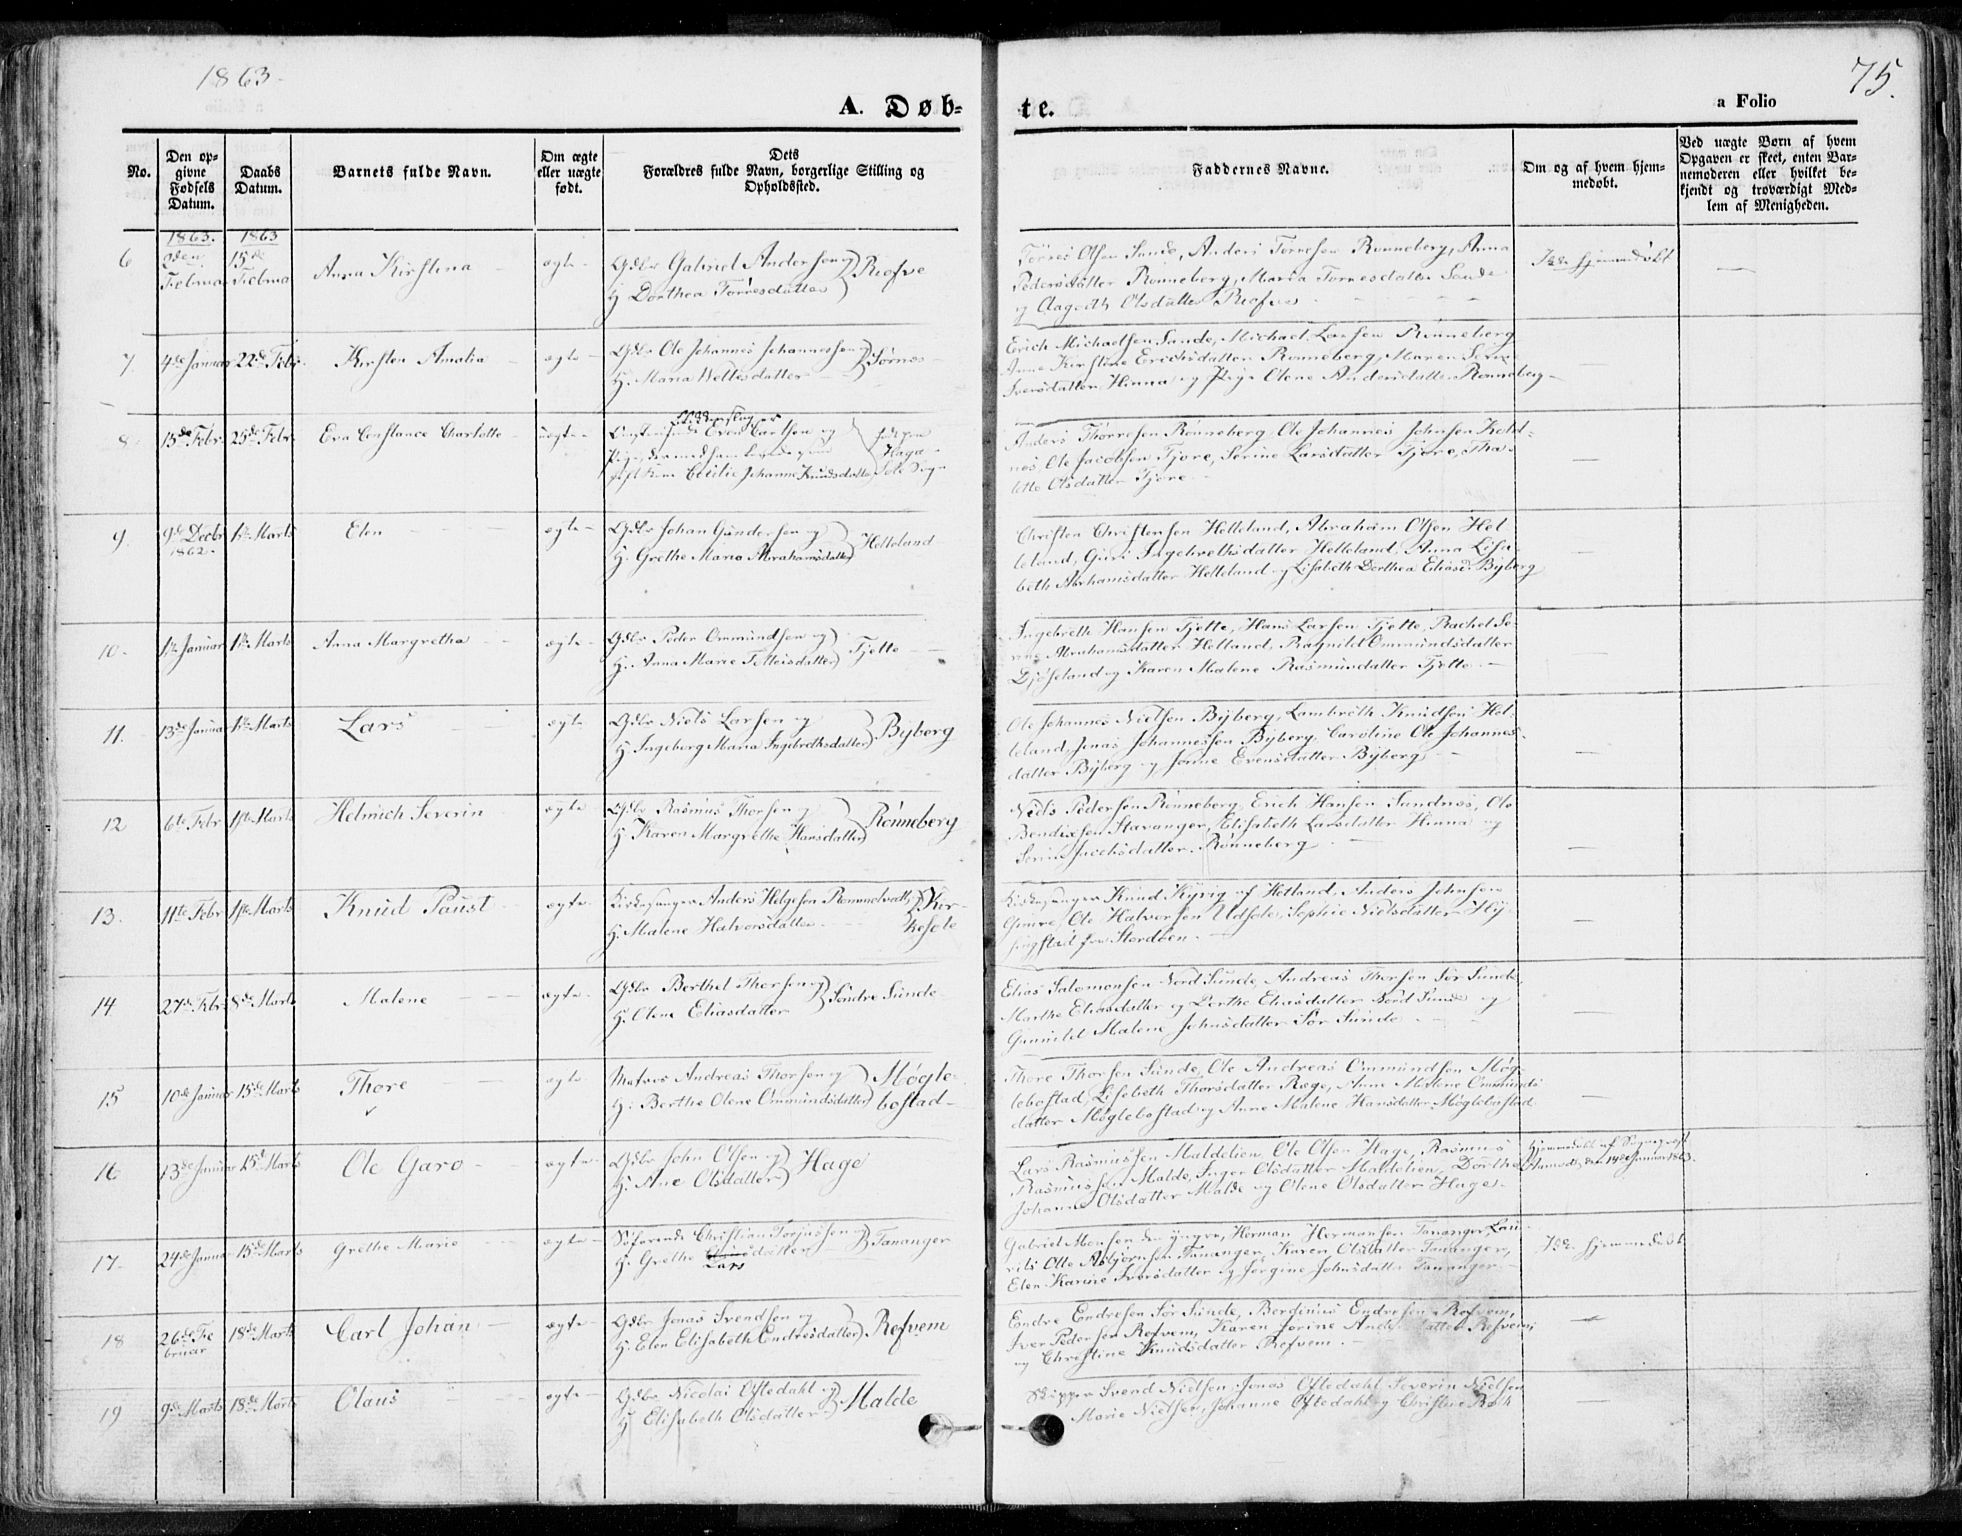 1863.
75.
A. Døb=
te.
a Folio
No.
Den op=
givne
Fødsels
Datum.
Daabs
Datum.
Barnets fulde Navn.
Om ægte
eller uægte
født.
Dets
Forældres fulde Navn, borgerlige Stilling og
Opholdssted.
Faddernes Navne.
Om og af hvem hjem=
medøbt.
Ved uægte Børn af hvem
Opgaven er skeet, enten Bar=
nemoderen eller hvilket be=
kjendt og troværdigt Med=
lem af Menigheden.
1863. 1863
6 15de Anna Kirstina ægte Gabriel Andersen og
Februar Februar H. Dorthea Torresdatter Refve
Torres Olsen Sunde, Anders Torresen Rønneberg, Anna
Pedersdatter Rønneberg, Maria Torresdatter Sunde
og Aagoth Olsdatter Refve
Ikke hjemmedøbt
7. 4de Januar 22de Febr. Kirsten Amalia ægte Ole Johannes Johannessen og
H. Maria Wettesdatter Sørnes
Erich Michaelsen Sande, Michael Larsen Rønneberg
Anne Kirstine Erichsdatter Rønneberg, Maren Serine
Iversdatter Hinna og Pige Olene Andersdatter Rønneberg
8. 15de Febr. 25de Febr. Eva Constance Charlotte uægte
Even Bartsen og
Pige
Cecilie Johanne Knudsdatter Haga Sole Sogn
Anders Thorresen Rønneberg, Ole Johannes Johnsen Kold=
nes, Ole Jacobsen Tjore, Serine Larsdatter Tjore, Tha=
lette Olsdatter Tjore
9. 9de Decbr 1ste Marts Elen ægte Johan Gundersen og
1862. H. Grethe Maria Abrahamsdatter Helleland
Christen Christensen Helleland, Abraham Olsen Hel=
leland, Guri Ingebrethsdatter Helleland, Anna Lisa=
beth Abrhamsdatter Helleland og Lisabeth Dorthea Eliasd. Byberg
10. 1ste Januar 1ste Marts Anna Margretha ægte Peder Ommundsen og
H. Anna Marie Tolleisdatter Tjelte
Ingebreth Hansen Tjelte, Hans Larsen Tjelte, Rachel Se=
rine Abrahamsdatter Helland, Ragnild Ommundsdatter
Djøseland og Karen Malene Rasmusdatter Tjelte.
11. 13de Januar 1ste Marts Lars ægte Niels Larsen og
H. Ingeborg Maria Ingebrethsdatter Byberg
Ole Johannes Nielsen Byberg, Lambreth Knudsen Hel=
leland, Jonas Johannessen Byberg, Caroline Ole Johannes=
datter Byberg og Jonine Evensdatter Byberg
12 6te Febr 1ste Marts Helmich Severin ægte Rasmus Thorsen og
H. Karen Margrethe Hansdatter Rønneberg
Niels Pedersen Rønneberg, Erich Hansen Sandnes, Ole
Bendixsen Stavanger, Elisabeth Larsdatter Hinna og
Serine Jacobsdatter Rønneberg
13. 11te Febr 1ste Marts Knud Paust ægte Kirkesanger Anders Helgesen Rommetvedt,
H. Malene Halvorsdatter Kir=
kesole
Kirkesanger Knud Kyrig af Hetland, Anders Johnsen
Gimre, Ole Halvorsen Udsole, Sophie Nielsdatter Hy=
fra Stordøen.
14 27de Febr. 8de Marts Malene ægte Berthel Thorsen og
H. Olene Eliasdatter Søndre Sunde
Elias Salomonsen Nord Sunde, Andreas Thorsen Sør Sunde,
Marthe Eliasdatter og Berthe Eliasdatter Nord Sunde og
Gunnild Malene Johnsdatter Sør Sunde
15 10de Januar 15de Marts Thore ægte Andreas Thorsen og
H. Berthe Olene Ommundsdatter Møgle=
bostad
Thore Thorsen Sunde, Ole Andreas Ommundsen Møg=
lebostad, Lisebeth Thorsdatter Ræge, Anne Malene Ommunds=
datter Møglebostad og Anne Malene Hansdatter Møglebostad.
16 13de Januar 15d Marts Ole Garo ægte John Olsen og
H. Ane Olsdatter Hage
Lars Rasmussen Maldelien, Ole Olsen Hage, Rasmus
Rasmussen Malde, Inger Olsdatter Maldelien, Dorthe
Johanne Olsdatter Malde og Olene Olsdatter Hage.
Hjemmedøbt af Sognepræst
den 14de Januar 1863.
17. 24de Januar 15de Marts Grethe Marie ægte Søfarende Christian Torjussen og
H. Grethe datter Tananger
Lars
Gabriel Monsen den yngre, Herman Hermansen Tananger, Lau=
rits Olle Asbjørnsen Tananger, Karen Olsdatter Tananger,
Elen Karine Iversdatter og Jorgine Johnsdatter Tananger.
Ikke hjemmedøbt
18 26de Fe= 18de Marts Carl Johan ægte Jonas Svendsen og
bruar H. Elen Elisabeth Endresdatter Refvem
Endre Endresen Sør Sunde, Berginus Endresen Refvem,
Iver Pedersen Refvem, Karen Jorine datter Refvem,
og Christine Knudsdatter Refvem.
19 9de Marts 18de Marts Olaus ægte Nicolai Oftedahl og
H. Elisabeth Olsdatter Malde
Skipper Svend Nielsen, Jonas Oftedahl, Severin Nielsen
Marie Nielsen, Johanne Oftedahl og Christine